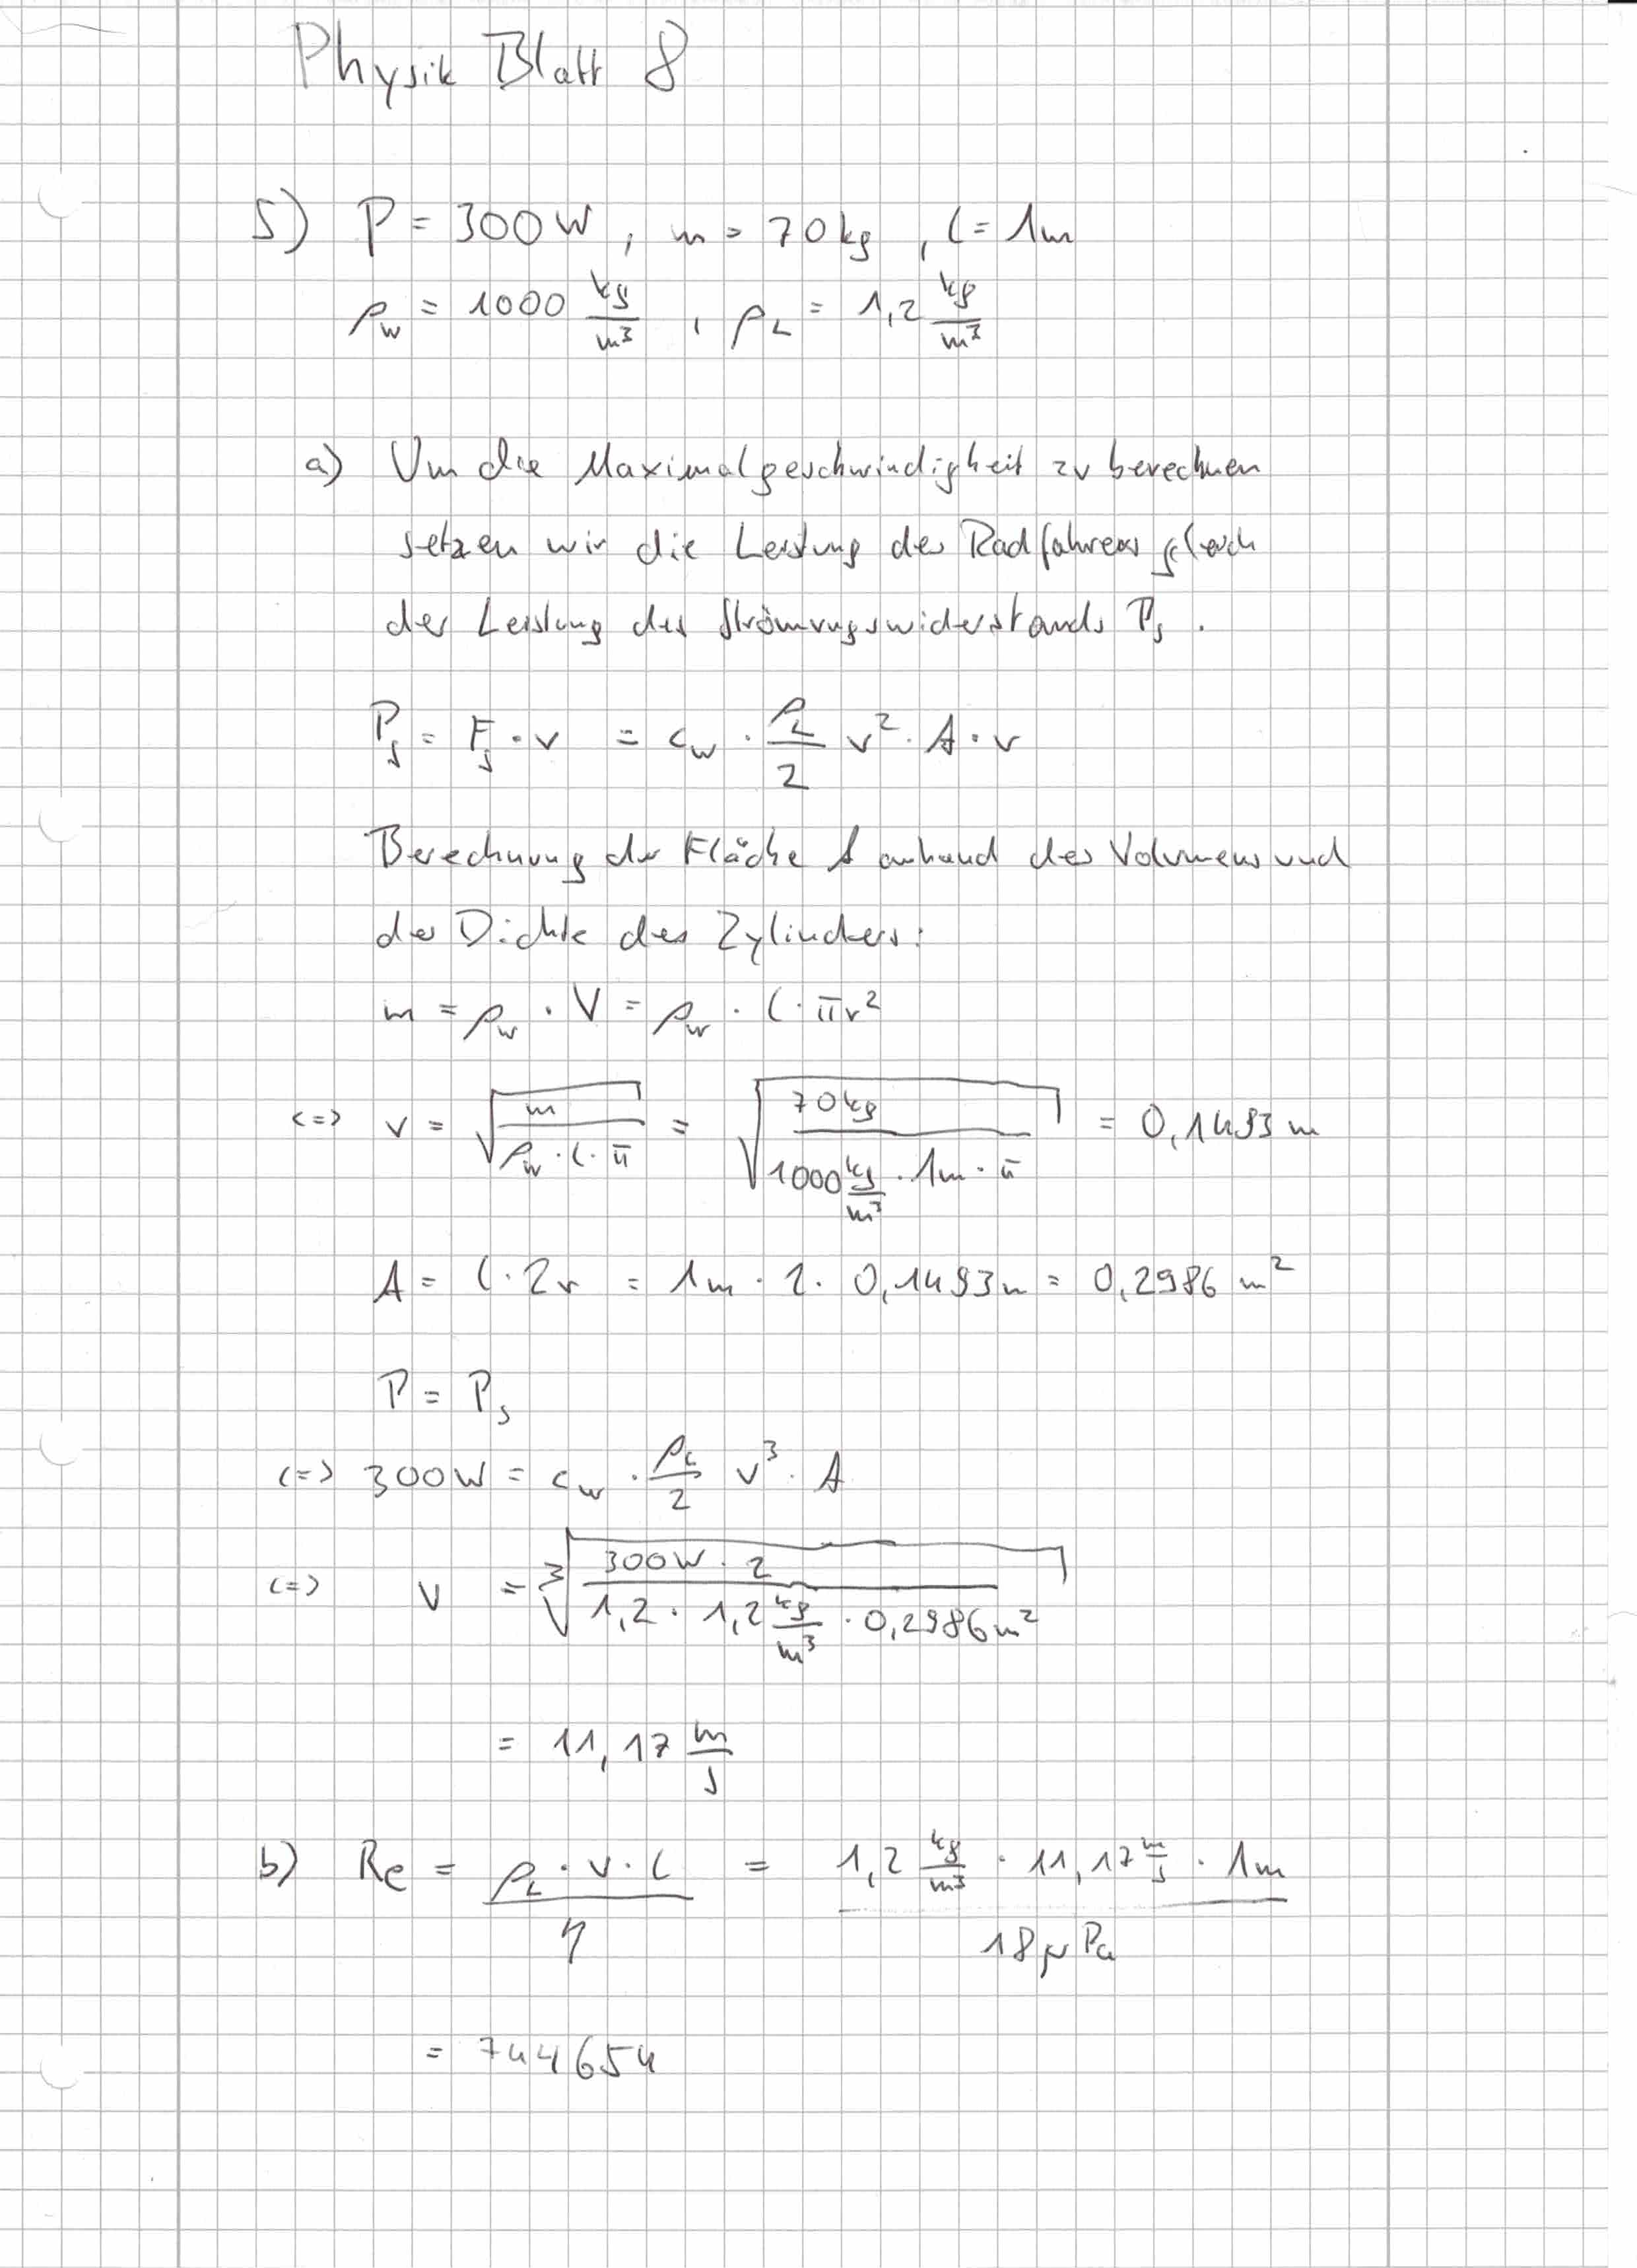 Physik Blatt 8
5) P = 300 W , m = 70 kg , l = 1m
ρ_W = 1000 kg/m³ , ρ_L = 1,2 kg/m³
a) Um die Maximalgeschwindigkeit zu berechnen
setzen wir die Leistung des Radfahrers gleich
der Leistung des Strömungswiderstands P_s .
P_s = F_s · v = c_w · ρ_L/2 v² · A · v
Berechnung der Fläche A anhand des Volumens und
der Dichte des Zylinders:
m = ρ_W · V = ρ_W · l · πr²
<=> r = √(m/(ρ_W · l · π)) = √(70 kg/(1000 kg/m³ · 1m · π)) = 0,1493 m
A = l · 2r = 1m · 2 · 0,1493m = 0,2986 m²
P = P_s
<=> 300W = c_w · ρ_L/2 v³ · A
<=> v = ∛(300W · 2/(1,2 · 1,2 kg/m³ · 0,2986 m²))
= 11,17 m/s
b) Re = ρ_L · v · l/η = 1,2 kg/m³ · 11,17 m/s · 1m/18 μ Pa
= 744654